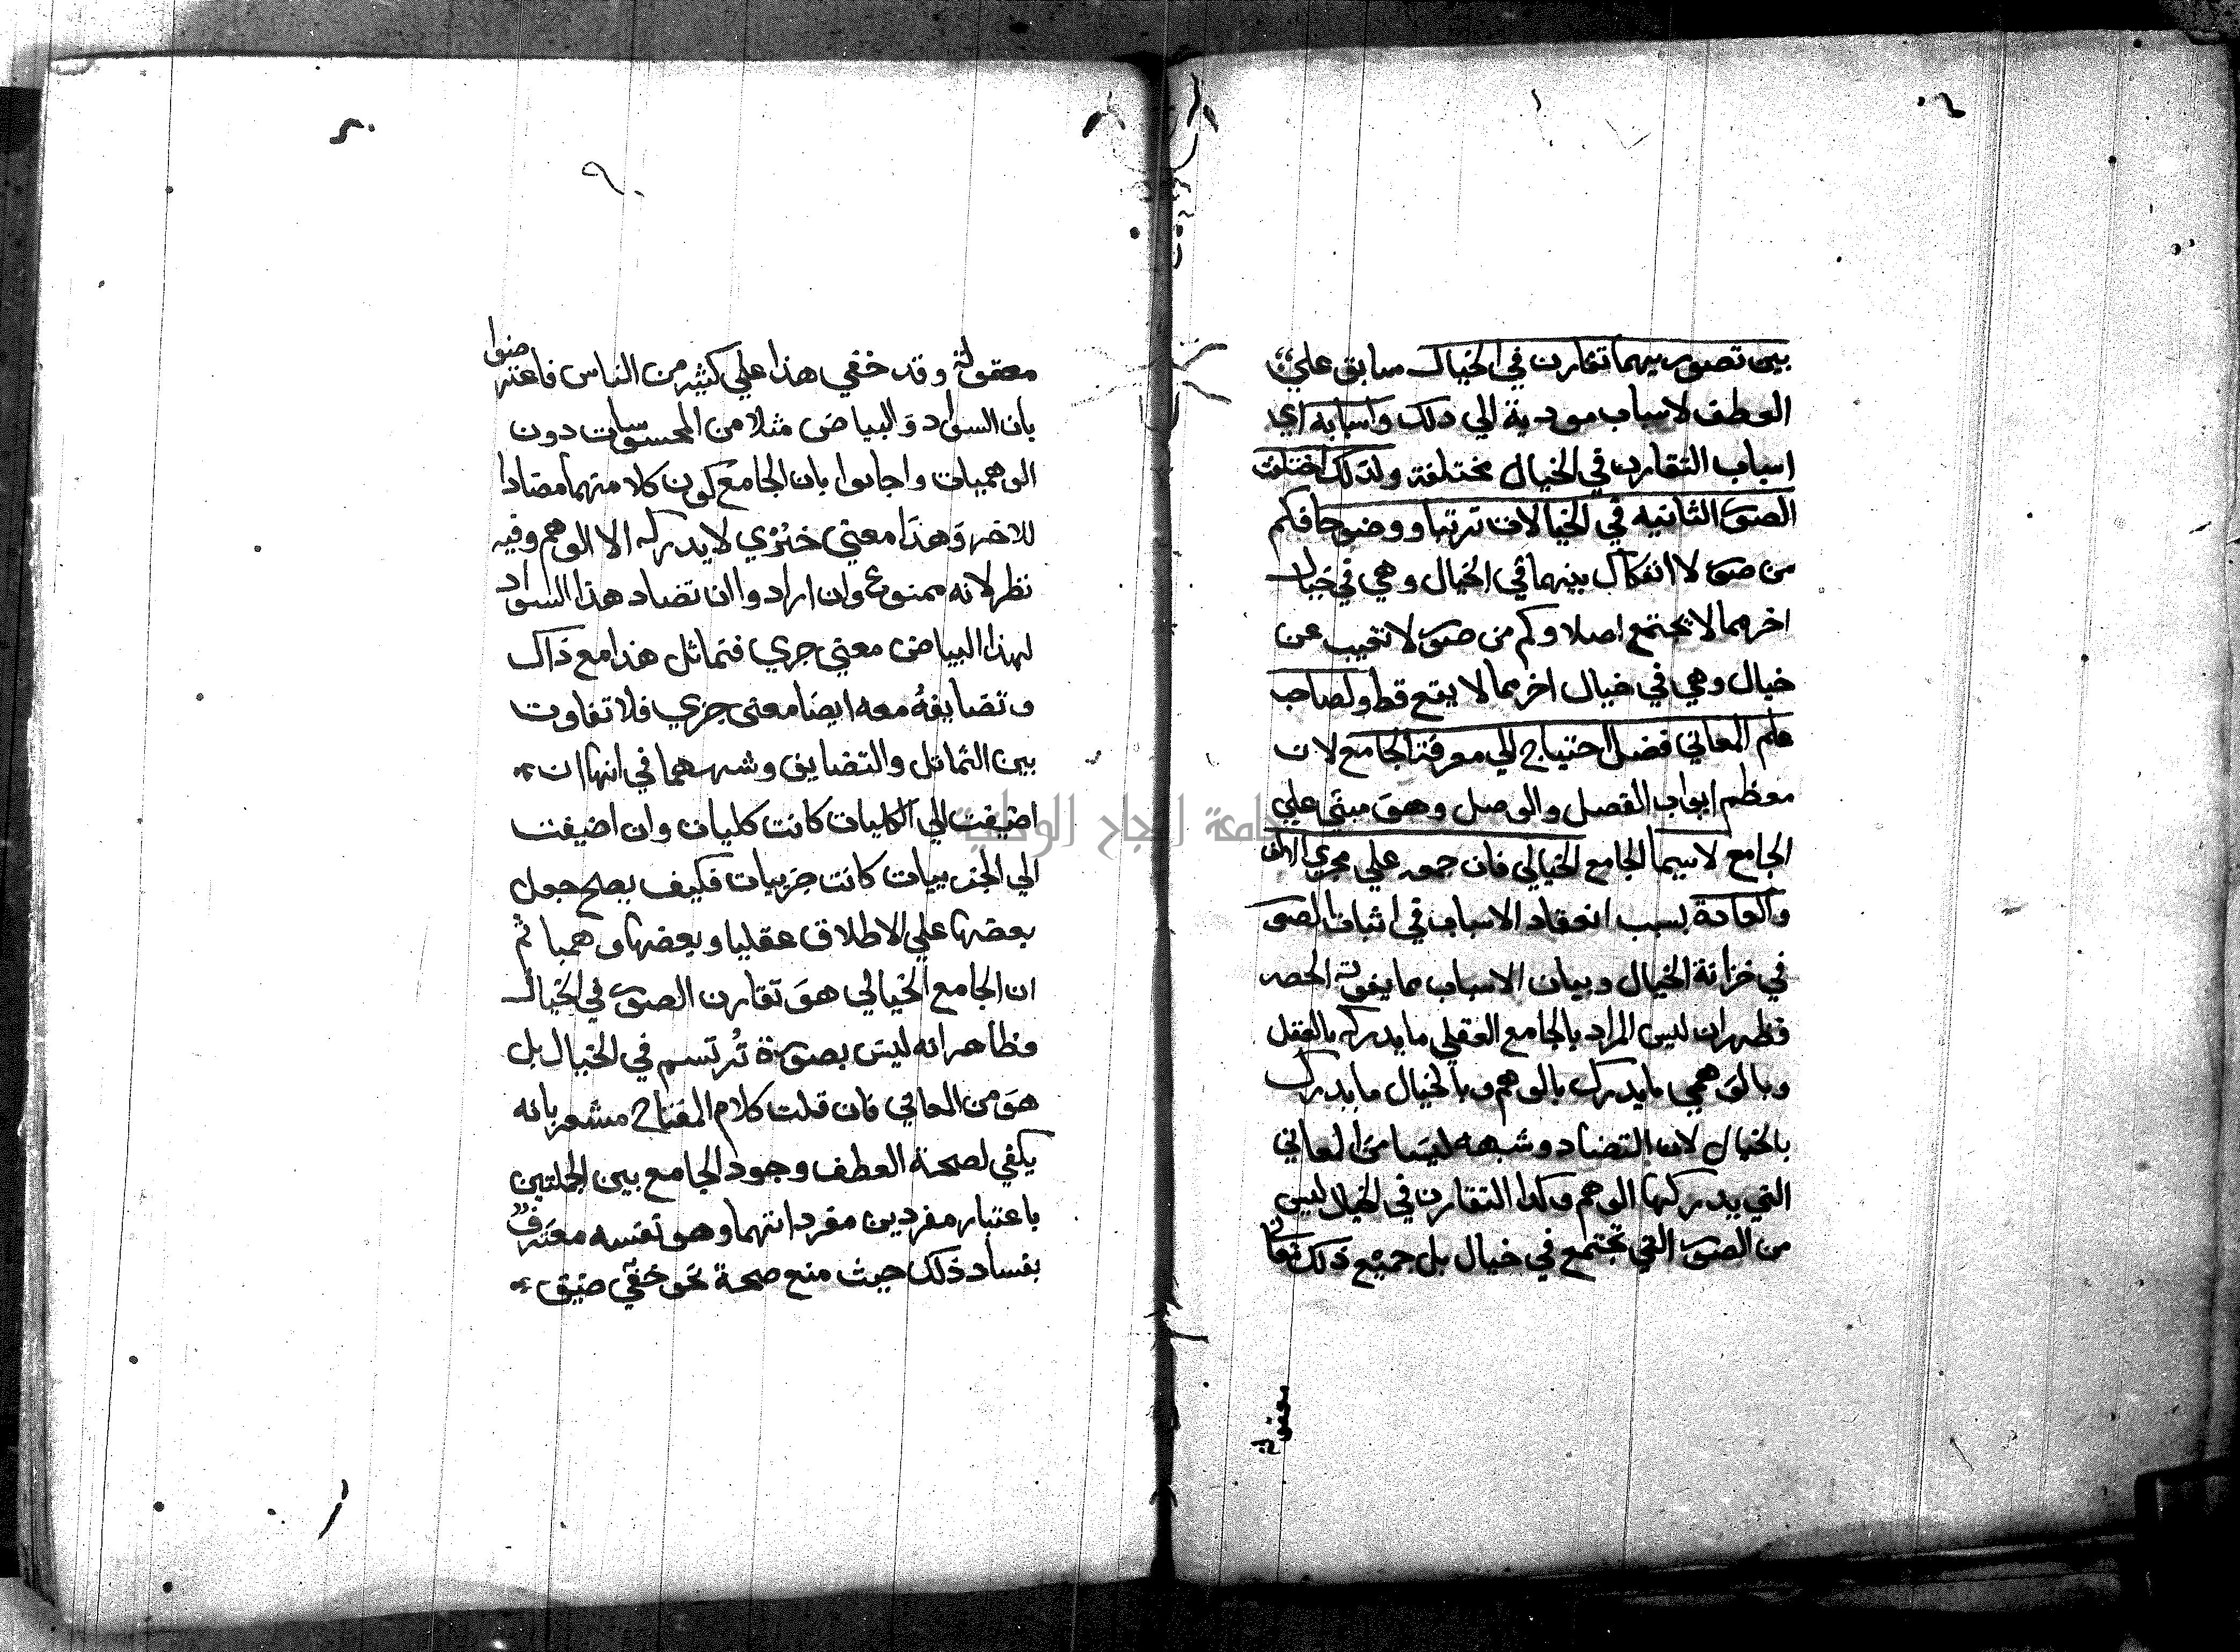 بين تصوريهما تقارن في الخيال سابق علي
العطف لاسباب مودية الي ذلك واسبابه اي
اسباب التقارن في الخيال مختلفة ولذلك اختلفت
الصور الثانيه في الخيالات ترتبا ووضوحا فكم
من صور لا انفكاك بينهما في الخيال وهي في خيال
اخر مما لا يجتمع اصلا وكم من صور لا تغيب عن
خيال وهي في خيال اخر مما لا يقع قط ولصاحب
علم المعاني فضل احتياج الي معرفة الجامع لان
معظم ابواب الفصل والوصل وهو مبني علي
الجامع لا سيما الجامع الخيالي فان جمعه علي مجري الالف
والعادة بسبب انعقاد الاسباب في اثبات الصور
في خزانة الخيال وبيان الاسباب مما يفوته الحصر
فظهر ان ليس المراد بالجامع العقلي ما يدركه بالعقل
وبالوهمي ما يدرك بالوهم وبالخيال ما يدرك
بالخيال لان التضاد وشبهه ليسا من المعاني
التي يدركها الوهم وكذا التقارن في الخيال ليس
من الصور التي تجتمع في خيال بل جميع ذلك معان
معقولة
معقولة وقد خفي هذا علي كثير من الناس فاعترضوا
بان السواد والبياض مثلا من المحسوسات دون
الوهميات واجابوا بان الجامع كون كلا منهما مضادا
للاخر وهذا معني جزي لا يدركه الا الوهم وفيه
نظر لانه ممنوع وان ارادوا ان تضاد هذا السواد
لهذا البياض معني جزي فتماثل هذا مع ذاك
وتضايفه معه ايضا معني جزي فلا تفاوت
بين التماثل والتضايف وشبههما في انها ان
اضيفت الي الكليات كانت كليات وان اضيفت
الي الجزييات كانت جزييات فكيف يصلح جعل
بعضها علي الاطلاق عقليا وبعضها وهميا ثم
ان الجامع الخيالي هو تقارن الصور في الخيال
وظاهر انه ليس بصورة ترتسم في الخيال بل
هو من المعاني فان قلت كلام المفتاح مشعر بانه
يكفي لصحة العطف وجود الجامع بين الجملتين
باعتبار مفردين مفرداتهما وهو نفسه معترف
بفساد ذلك حيث منع صحة نحو خفي ضيق